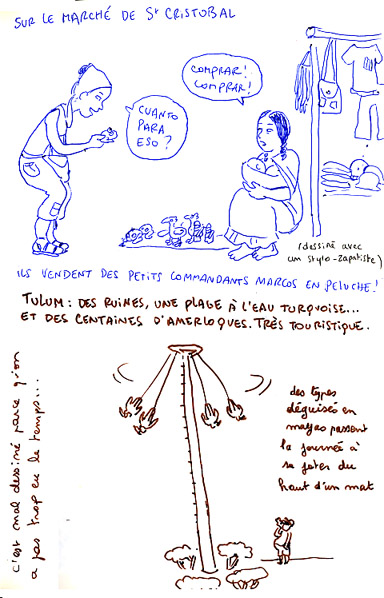 SUR LE MARCHÉ DE St CRISTOBAL
COMPRAR!
COMPRAR!
CUANTO
PARA
ESO?
(dessiné avec
un stylo-zapatiste)
ILS VENDENT DES PETITS COMMANDANTS MARCOS EN PELUCHE!
TULUM: DES RUINES, UNE PLAGE À L'EAU TURQUOISE...
ET DES CENTAINES D'AMERLOQUES. TRÈS TOURISTIQUE.
c'est mal dessiné parce qu'on
a pas trop eu le temps...
des types
déguisés en
mayas passent
la journée à
se jeter du
haut d'un mat